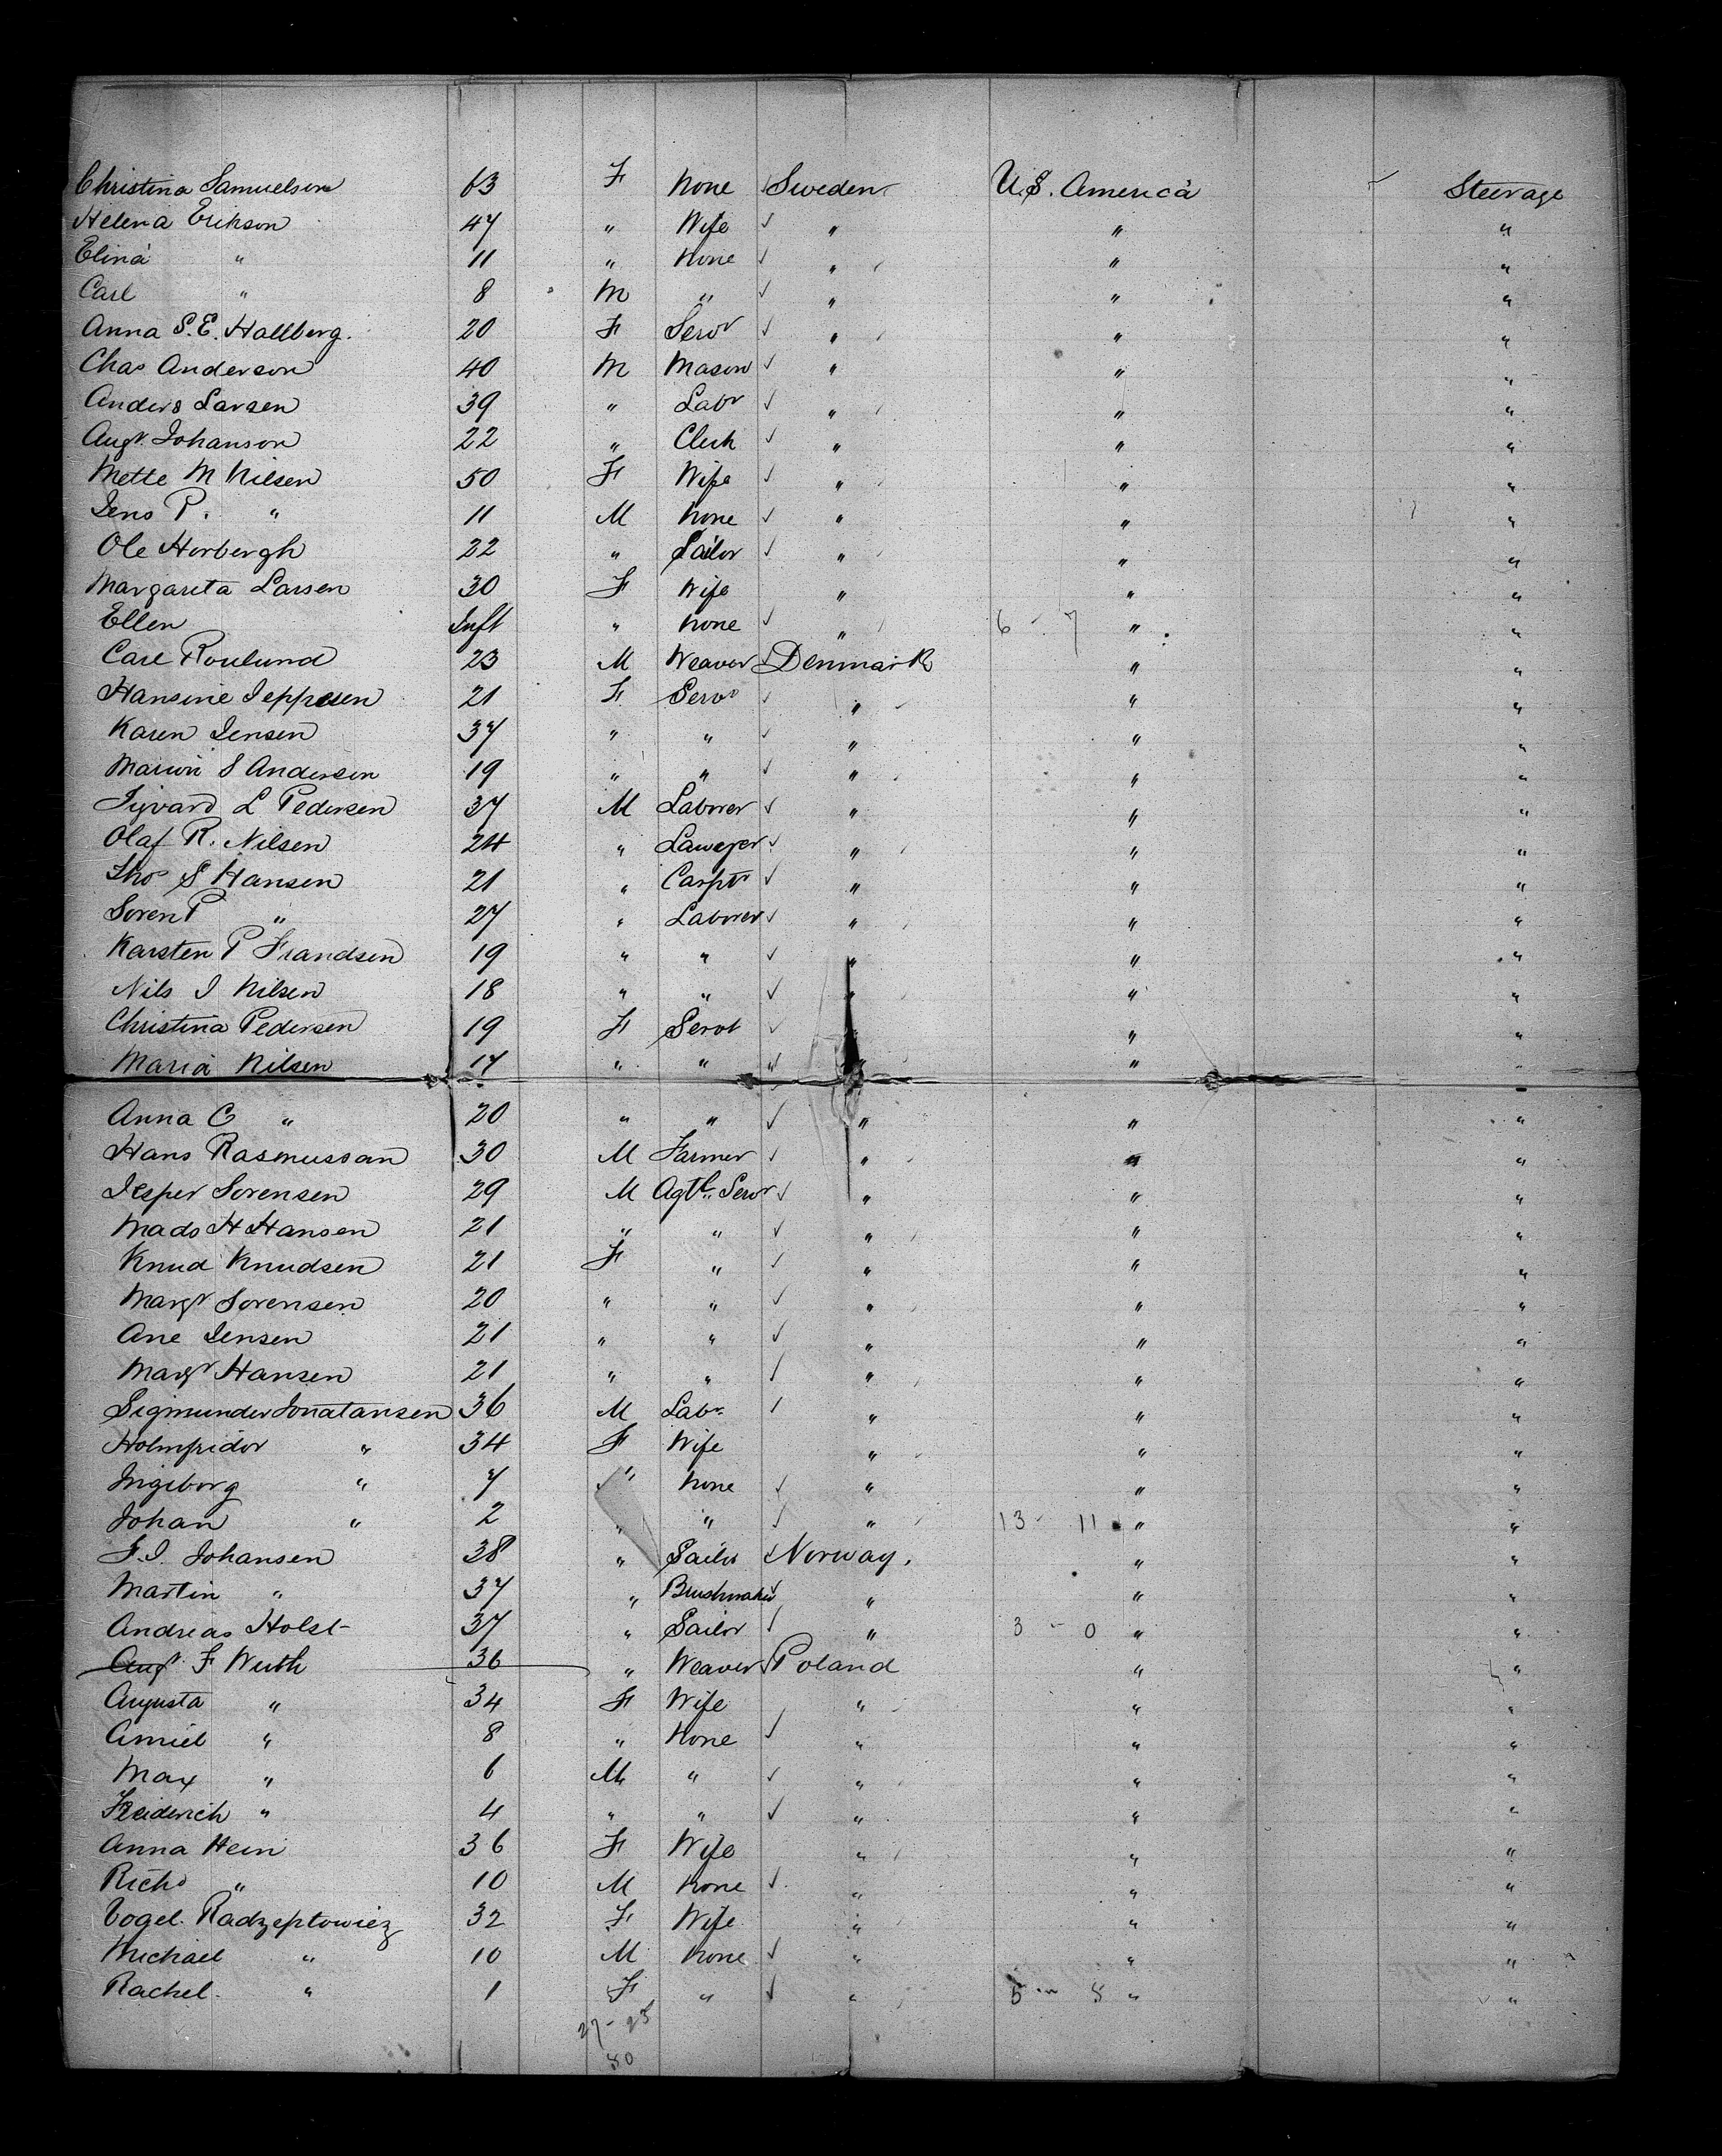 Christina Samuelson 63 F None Sweden U.S. America Steerage
Helena Erikson 47 " Wife " " "
Elina " 11 " None " " "
Carl " 8 M " " " "
Anna S.E. Hallberg. 20 F Servt " " "
Chas Anderson 40 M Mason " " "
Anders Larsen 39 " Labr " " "
Augt. Johanson 22 " Clerk " " "
Mette M Nilsen 50 F Wife " " "
Jens P. " 11 M None " " "
Ole Horbergh 22 " Sailor " " "
Margareta Larsen 30 F Wife " " "
Ellen Inft " None " 6 - 7 " "
Carl Roulund 23 M Weaver Denmark " "
Hansine Jeppesen 21 F Servt " " "
Karen Jensen 37 " " " " "
S Andersen 19 " " " " "
Sigvard L Pedersen 37 M Laborer " " "
Olaf R. Nilsen 24 " Lawyer " " "
Thos S Hansen 21 " Carptr " " "
Soren P " 27 " Laborer " " "
Karsten P Frandsen 19 " " " " "
Nils J Nilsen 18 " " " " "
Christina Pedersen 19 F Servt " " "
Maria Nilsen 17 " " " " "
Anna C " 20 " " " " "
Hans Rasmussan 30 M Farmer " " "
Jesper Sorensen 29 M Agtl. Servt " " "
Mads H Hansen 21 " " " " "
Knud Knudsen 21 F " " " "
Margt Sorensen 20 " " " " "
Ane Jensen 21 " " " " "
Margt Hansen 21 " " " " "
Sigmunder Jonatansen 36 M Labr. " " "
Holmfridor " 34 F Wife " " "
Ingiborg " 7 " None " " "
Johan " 2 " " " 13 - 11 " "
F.J. Johansen 38 " Sailor Norway. " "
Martin " 37 " Brushmaker " " "
Andreas Holst 37 " Sailor " 3 - 0 " "
Augt. F Wuth 36 " Weaver Poland " "
Augusta " 34 F Wife " " "
Amiel " 8 " None " " "
Max " 6 M " " " "
Freiderich " 4 " " " " "
Anna Hein 36 F Wife " " "
Richd " 10 M None " " "
Vogel. Radzeptowiez 32 F Wife " " "
Michael " 10 M None " " "
Rachel. " 1 F " " 5 - 5 " "
27 - 23
50